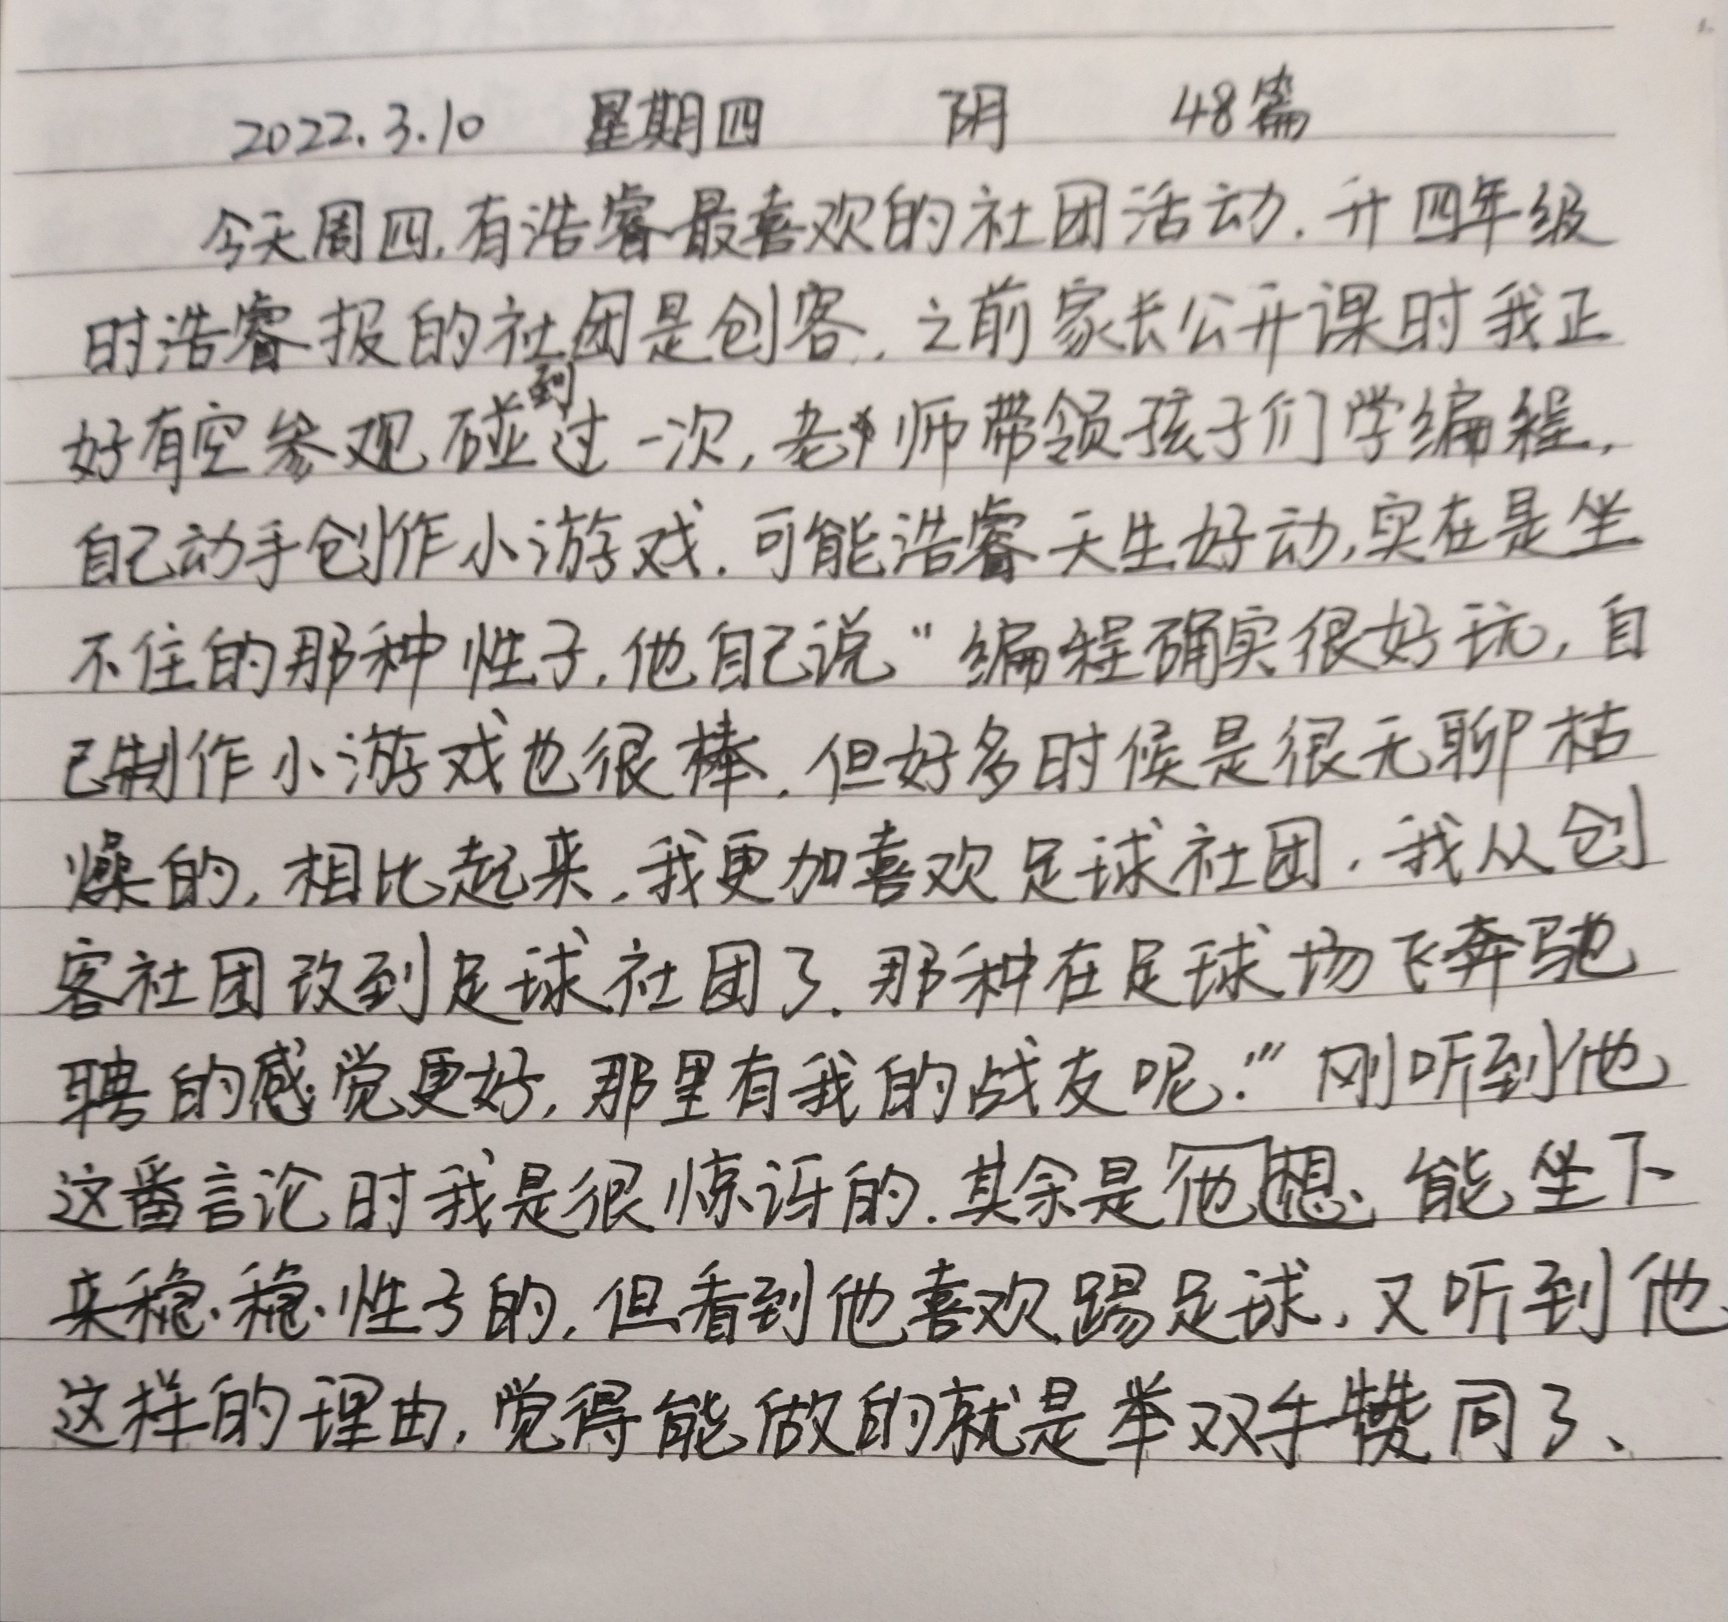 2022.3.10 星期四 阴 48篇
今天周四,有浩睿最喜欢的社团活动.升四年级
时浩睿报的社团是创客.之前家长公开课时我正
好有空参观碰到过一次,老师带领孩子们学编程,
自己动手创作小游戏.可能浩睿天生好动,实在是坐
不住的那种性子.他自己说“编程确实很好玩,自
己制作小游戏也很棒.但好多时候是很无聊枯
燥的,相比起来,我更加喜欢足球社团.我从创
客社团改到足球社团了.那种在足球场飞奔驰
骋的感觉更好,那里有我的战友呢!”刚听到他
这番言论时我是很惊讶的.其余是他想能坐下
来稳稳性子的,但看到他喜欢踢足球,又听到他
这样的理由,觉得能做的就是举双手赞同了、